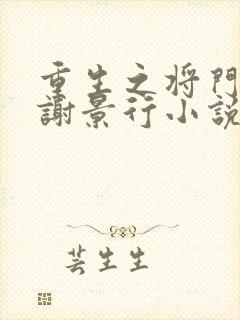 重生之将門
謝景行小説
芸生生